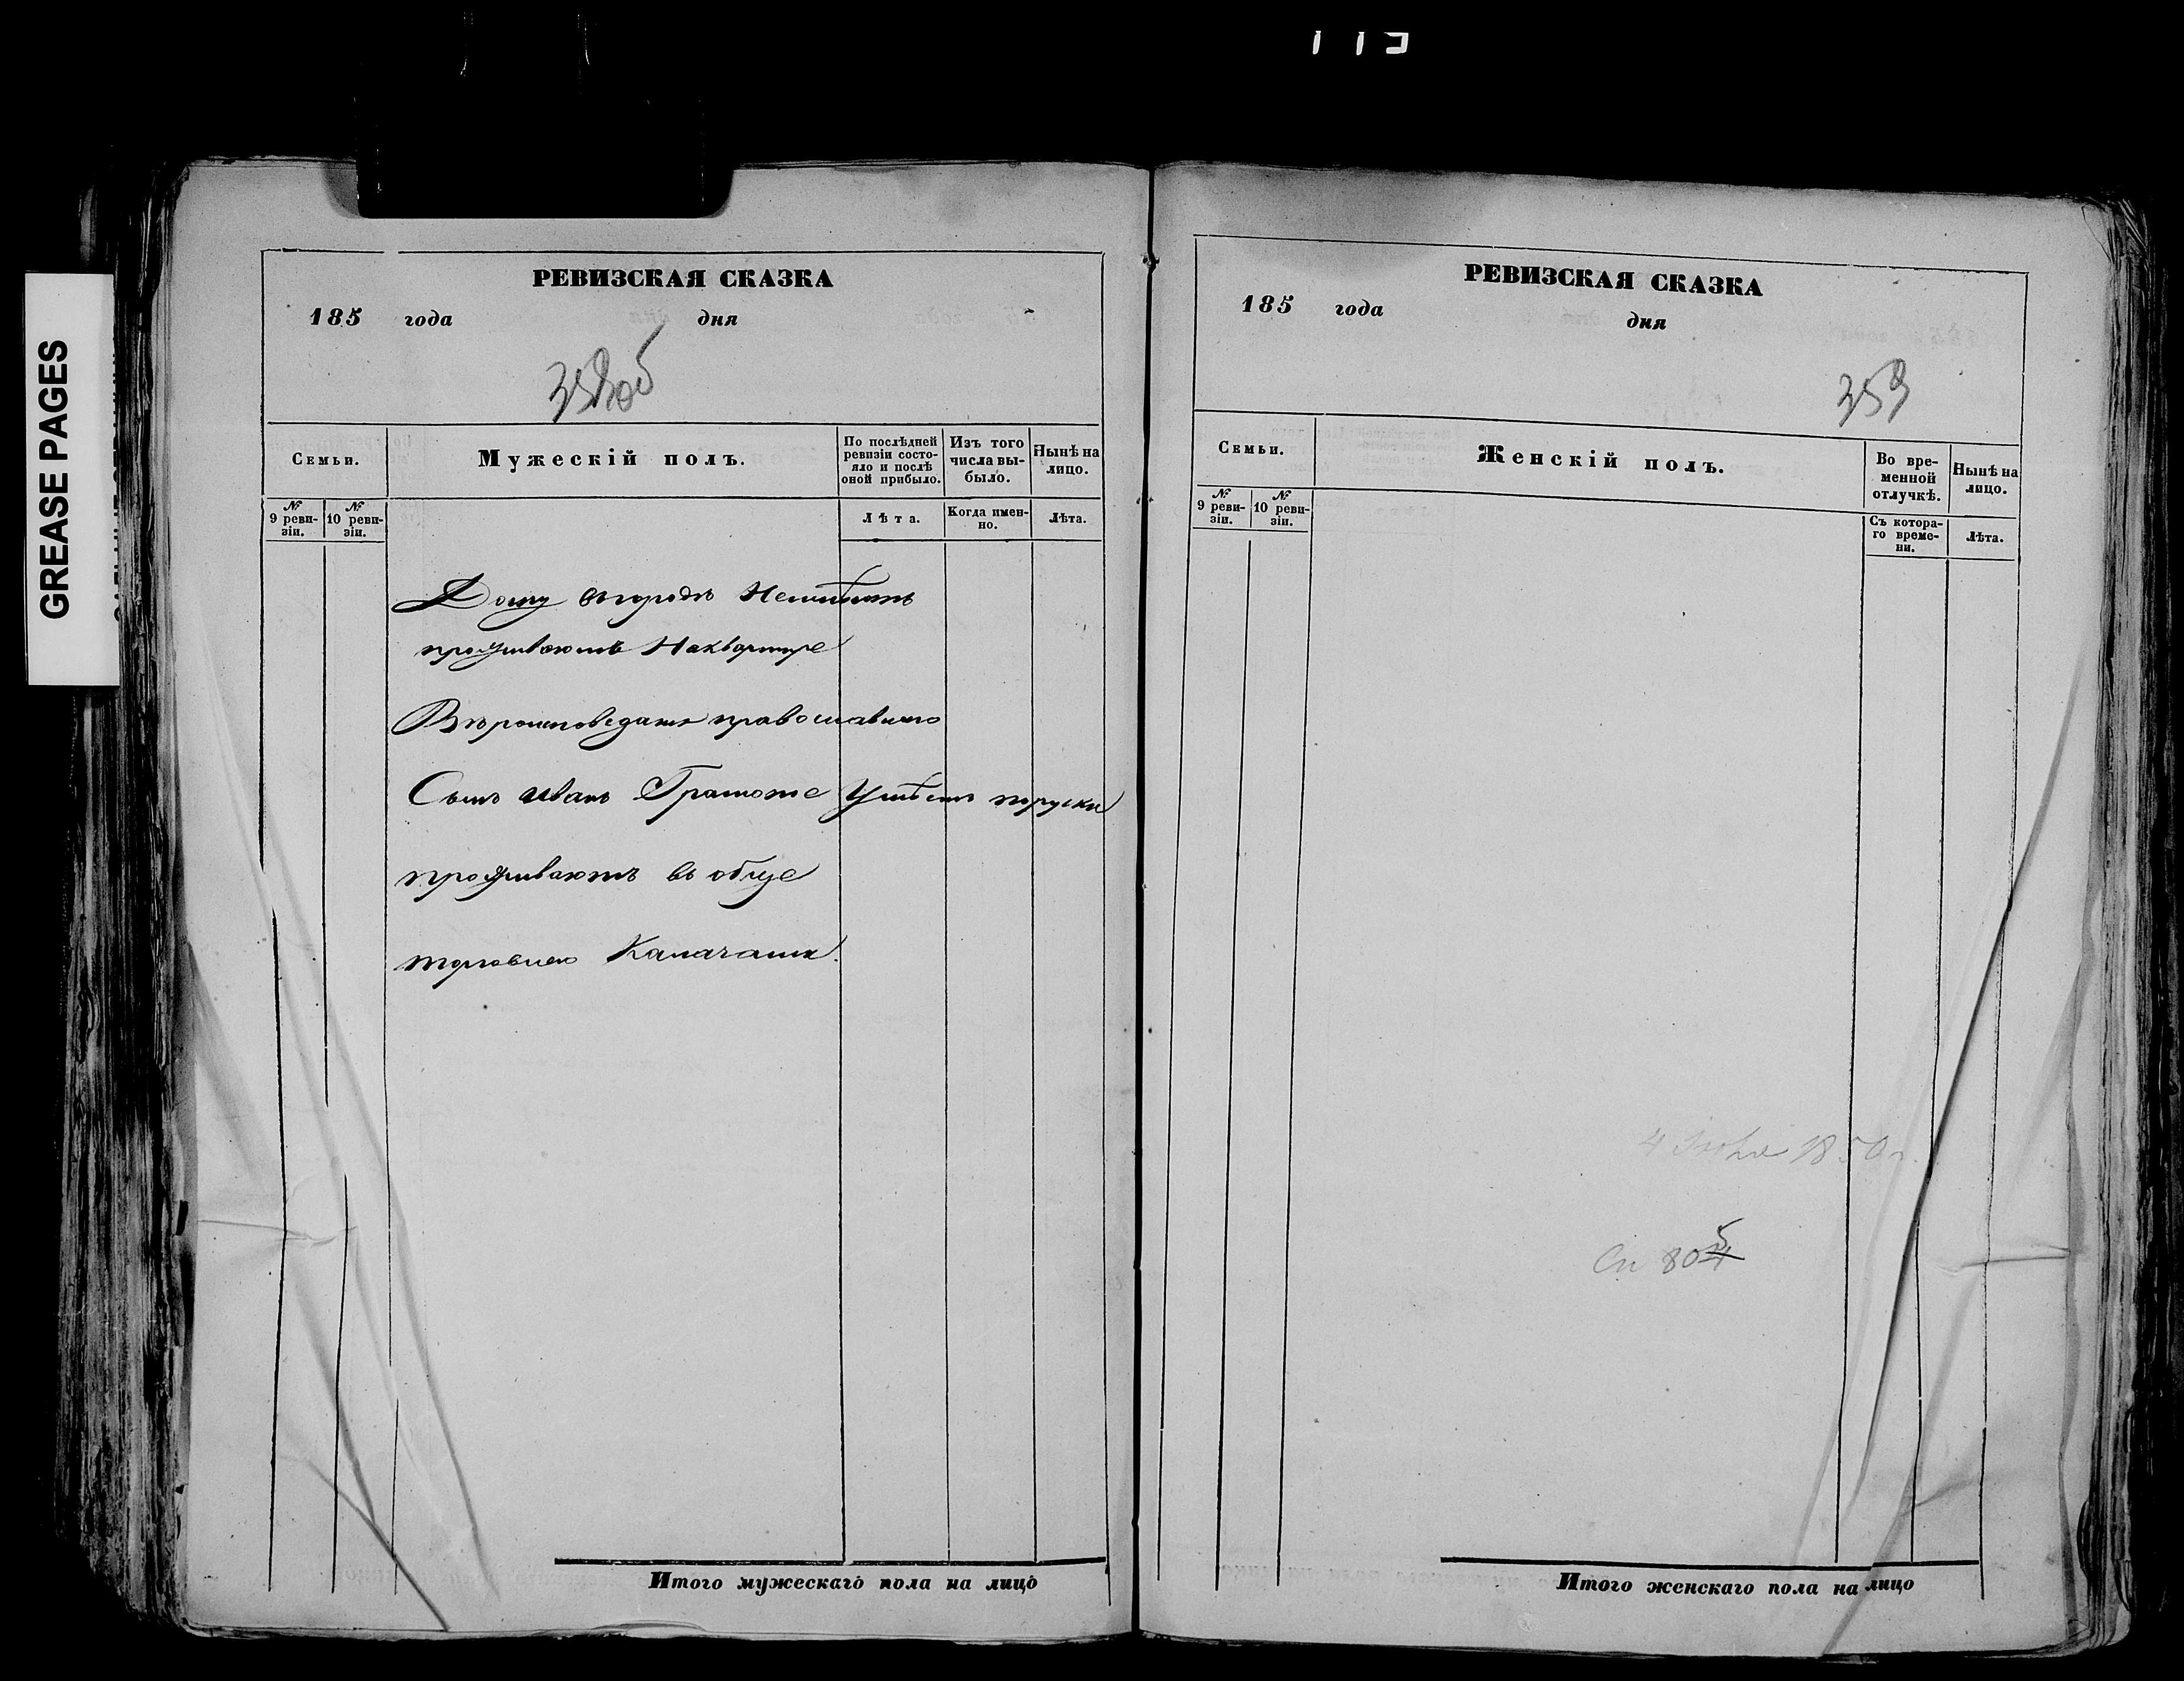 GREASE PAGES
РЕВИЗСКАЯ СКАЗКА
185 года дня
358об
Семьи.
Мужескій полъ.
По послѣдней ревизіи состояло и послѣ оной прибыло.
Изъ того числа выбыло.
Нынѣ на лицо.
№ 9 ревизіи.
№ 10 ревизіи.
Лѣта.
Когда именно.
Лѣта.
Дому въ городѣ Неимѣютъ
проживаютъ Наквартире
Вѣроисповеданія православнаго
Сынъ Иванъ Грамоте Умѣетъ поруски
проживаютъ въ обще
торговлею Калачами.
Итого мужескаго пола на лицо
РЕВИЗСКАЯ СКАЗКА
185 года дня
359
Семьи.
Женскій полъ.
Во временной отлучкѣ.
Нынѣ на лицо.
№ 9 ревизіи.
№ 10 ревизіи.
Съ котораго времени.
Лѣта.
4 1850 г.
Сп 805
Итого женскаго пола на лицо